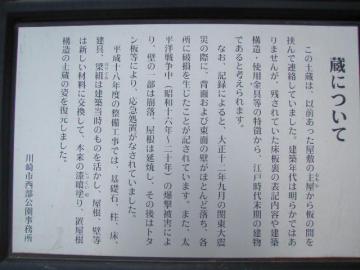 蔵について
この土蔵は、以前あった屋敷の主屋から板の間を
挟んで連絡していました。建築年代は明らかではあ
りませんが、残されていた床板裏の表記内容や建築
構造・使用金具等の特徴から、江戸時代末期の建物
であると考えられます。
なお、記録によると、大正十二年九月の関東大震
災の際に、背面および東面の壁がほとんど落ち、各
所に破損を生じたことが記されています。また、太
平洋戦争中(昭和十六年～二十年)の爆撃被害によ
り、壁の一部は崩落、屋根は延焼し、その後はトタ
ン板等により、応急処置がなされていました。
平成十八年度の整備工事では、基礎石、柱、床、
建具、梁組は建築当時のものを活かし、屋根、壁等
は新しい材料に交換して、本来の漆喰塗り、置屋根
構造の土蔵の姿を復元しました。
川崎市西部公園事務所